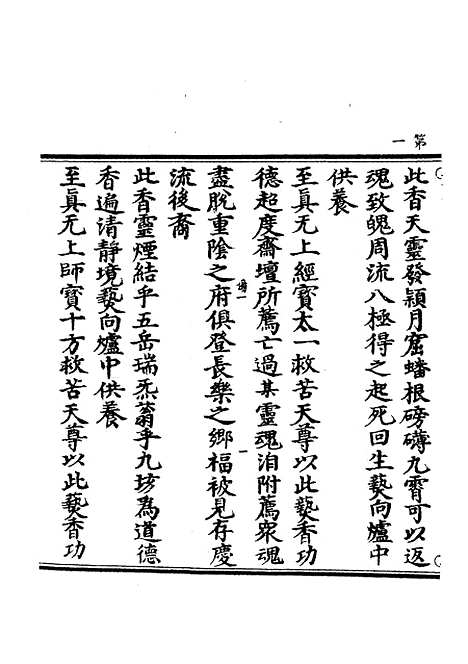 第一
此香天靈發頴月窟蟠根磅礴九霄可以返
魂致魄周流八極得之起死回生爇向爐中
供養
至眞无上經寳太一救苦天尊以此爇香功
德超度齋壇所薦亡過某靈魂洎附薦衆魂
盡脫重隂之府俱登長樂之鄉福被見存慶
流後裔
此香靈煙結乎五岳瑞炁蓊乎九垓為道德
香遍清靜境爇向爐中供養
至眞无上師寳十方救苦天尊以此爇香功